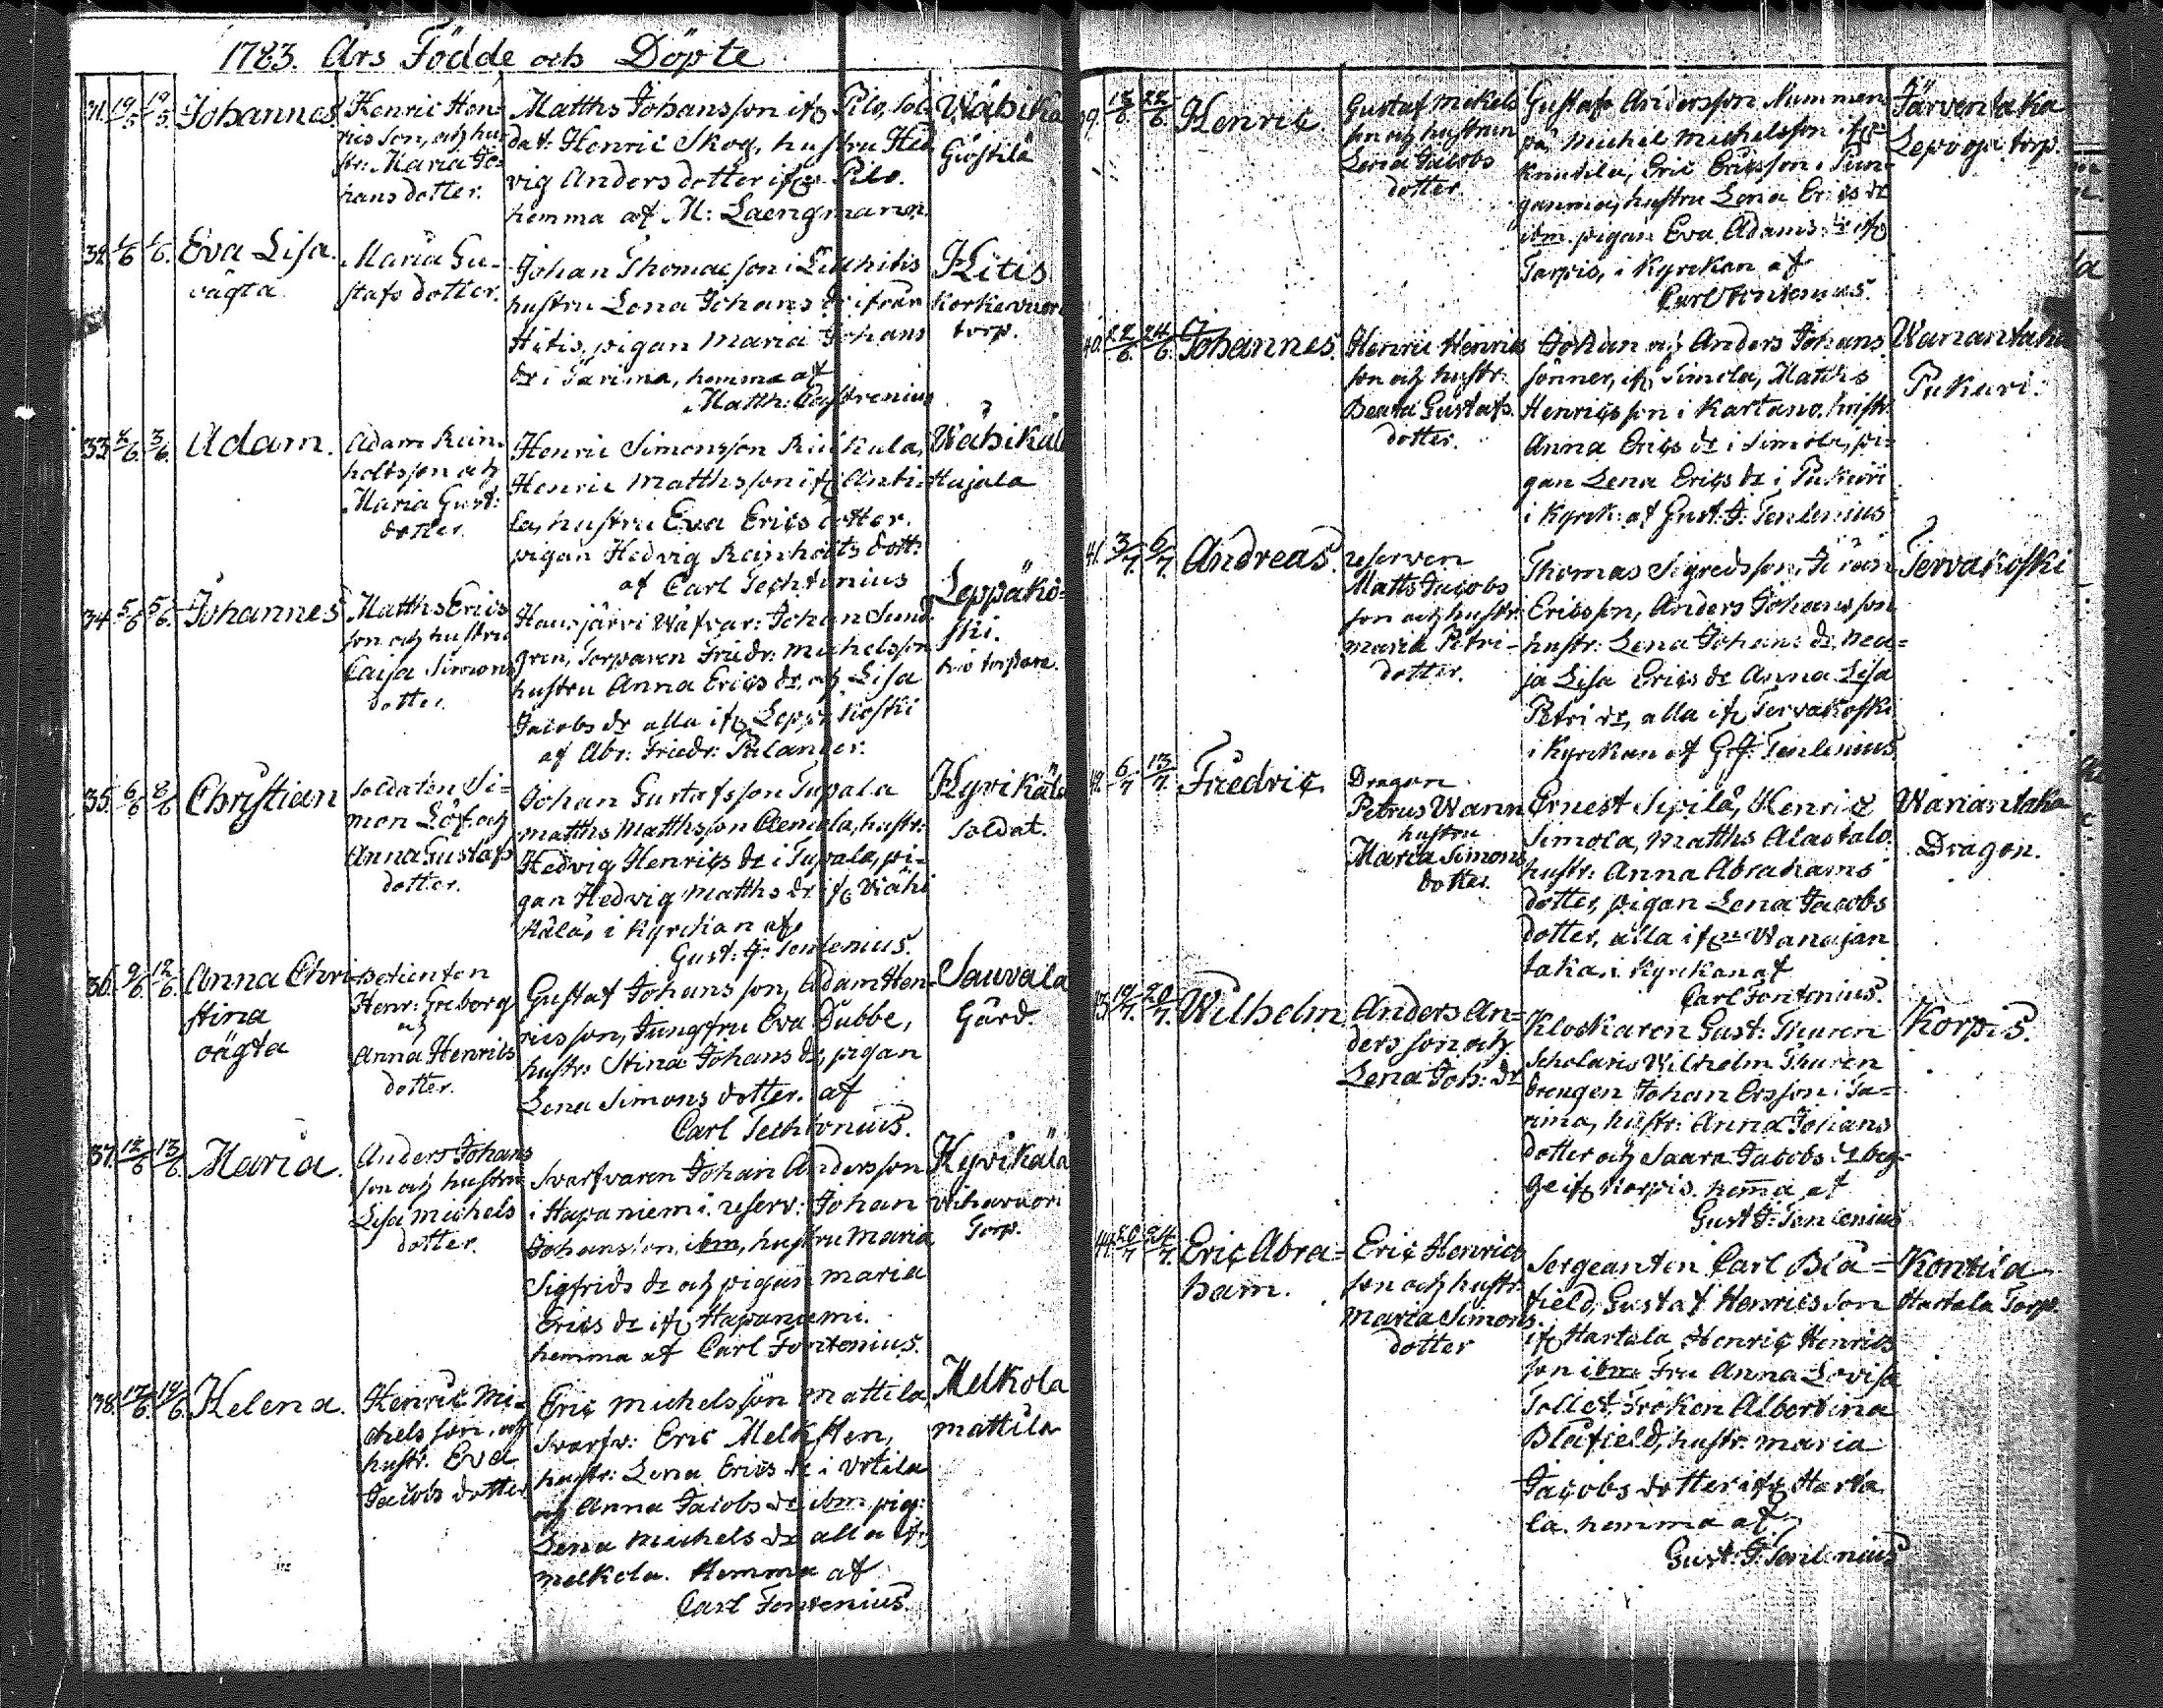 1783. Års Födde och Döpte
31. 19/5 19/5. Johannes.
Henric Hen-
rics son, och hu-
str: Maria Jo-
hans dotter.
Matths Johansson ifr. Pilo, sol-
dat: Henric Skog, hustru Hed
vig Anders dotter ifr. Pilo.
hemma af M: Laengmann.
Wähikä
Giöstilä
32. 1/6 1/6. Eva Lisa.
oägta
Maria Gu-
stafs dotter.
Johan Thomasson i
hustru Lena Johans dr ifrån
Hitis, pigan Maria Johans
dr i Tarima, hemma af
Matth: Castrenius
Hitis
Korkevuori
torp.
33. 2/6. 3/6. Adam.
Adam Rein-
holtsson och
Maria Gust:
dotter.
Henric Simonsson
Henric Matthsson ifr. Anti-
la, hustru Eva Erics dotter.
pigan Hedvig Reinholts dott:
af Carl Fechtonius
Wähikälä
Hujala
34. 5/6 5/6. Johannes
Matths Erics
son och hustru
Caisa Simons
dotter.
Hausjärvi Wäfvar: Johan Sund
gren, Torparen Friedr: Michelsson
hustru Anna Erics dr, och Lisa
Jacobs dr alla ifr. Leppäkoski
af Abr: Friedr: Polander.
Leppäko-
ski.
torpare.
35. 6/6 8/6 Christian
Soldaten Si-
mon Löf och
Anna Gustafs
dotter.
Johan Gustafsson Tupala
Matths Matthsson hustr:
Hedvig Henrics dr i Tupala, pi-
gan Hedvig Matths dr ifr. Wähi
kälä, i Kyrckan af
Gust: J: Tenlenius.
Hyvikälä
Soldat.
36. 9/6. 12/6. Anna Chri-
stina
oägta
Henr: Freborg
och
Anna Henrics
dotter.
Gustaf Johansson, Adam Hen-
ricsson, Jungfru Eva Dubbe,
hustr: Stina Johans dr, pigan
Lena Simons dotter. af
Carl Fechtonius.
Sauvala
Gård.
37. 12/6 13/6. Maria.
Anders Johans
son och hustru
Lisa Michels
dotter.
Svarfvaren Johan Andersson
i Hapaniemi. reserv: Johan
Johansson, ibm, hustru Maria
Sigfrids dr och pigan Maria
Erics dr ifr. Hapaniemi.
hemma af Carl Fontenius.
Hyvikälä
Wiharvuori
Torp.
38. 17/6. 19/6. Helena.
Henric Mi-
chelsson, och
hustr. Eva
Jacobs dotter
Eric Michelsson Mattila,
Svarfv: Eric Melksten,
hustr: Lena Erics dr i Ortila
och Anna Jacobs dr ibm pig:
Lena Michels dr alla ifr.
Melkola. Hemma af
Carl Fontenius.
Melkola
Mattila
39. 18/6. 22/6. Henric
Gustaf Mickels
son och hustrun
Lena Jacobs
dotter.
Gustaf Andersson Nummen
pä Michel Michelsson ifr.
Knutila, Eric Ericsson i Tun-
ganma, hustru Lena Erics dr
ibm. pigan Eva Adams dr ifr.
Tarpis, i Kyrckan af
Carl Fontenius.
Järventaka
torp.
40. 22/6. 24/6. Johannes
Henric Henrics
son och hustr:
Beata Gustafs.
dotter.
Johan och Anders Johans
sönner, ifr. Simola, Matths
Henricsson i Kartano, hustr.
Anna Erics dr i Simola, pi-
gan Lena Erics dr i Pukuri
i Kyrck: af Gust: J: Tenlenius
Wanantaka
Pukuri.
41. 3/7. 6/7. Andreas.
reserven
Matts Jacobs
son och hustr:
Maria Petri-
dotter.
Thomas Sigredsson, Jöran
Ericsson, Anders Johansson
hustr: Lena Johans dr, Mea-
ja Lisa Erics dr Anna Lisa
Petri dr, alla ifr. Tervakoski
i Kyrckan af G. J. Tenlenius
Tervakoski
42. 6/7 13/7. Friedric.
Dragon
Petrus Wann
hustru
Maria Simons
dotter.
Ernest Sipilä, Henric
Simola, Matths Alastalo.
hustr: Anna Abrahams
dotter, pigan Lena Jacobs
dotter, alla ifrn Wanajan
taka, i Kyrckan af
Carl Fontenius.
Wanantaka
Dragon.
43. 19/7. 20/7. Wilhelm
Anders An-
ders son och
Lena Joh: dr
Klockaren Gust: Thuren
Scholaris Wilhelm Thuren
drengen Johan Ersson i Ta-
rima, hustr: Anna Johans
dotter och Saara Jacobs dr beg-
ge ifr. Korpis. hema af
Gust J: Tenlenius
Korpis.
44. 20/7 24/7. Eric Abra-
ham.
Eric Henrics
son och hustr.
Maria Simons
dotter
Sergeanten Carl Blå-
field, Gustaf Henricsson
ifr. Hartala Henric Henrics
son ibm Fru Anna Lovisa
Tollet, Fröken Albertina
Blåfield, hustr. Maria
Jacobs dotter ifr. Harta
la. hemma af
Gust: J: Tenlenius
Kontila
Hartala Torp.